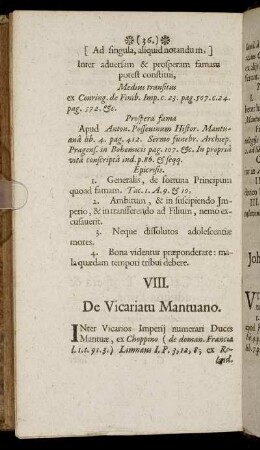 ❋ (36.) ❋
[ Ad singula, aliquid notandum. ]
Inter adversam & prosperam famam
potest constitui,
Medius transitus
ex Conring. de Finib. Imp. c. 23. pag. 507. c. 24.
pag. 572. &c.
Prospera fama
Apud Anton. Possevinum Histor. Mantu-
anâ lib. 4. pag. 412. Sermo funebr. Archiep.
Pragens. in Bohemicis pag. 107. &c. In propriâ
vitâ conscriptâ ind. p. 86. & seqq.
Epicrisis.
1. Generalis, de fortuna Principum
quoad famam. Tac. 1. A. 9. & 10.
2. Ambitum, & in suscipiendo Jm-
perio, & in transferendo ad Filium, nemo ex-
cusaverit.
3. Neque dissolutos adolescentiæ
mores.
4. Bona videntur præponderare: ma-
la quædam tempori tribui debere.
VIII.
De Vicariatu Mantuano.
INter Vicarios Imperij numerari Duces
Mantuæ, ex Choppino (de doman. Franciæ
l. 1. t. 91. 5.) Limnæus I. P. 3, 12, 8; ex Rö-
land.